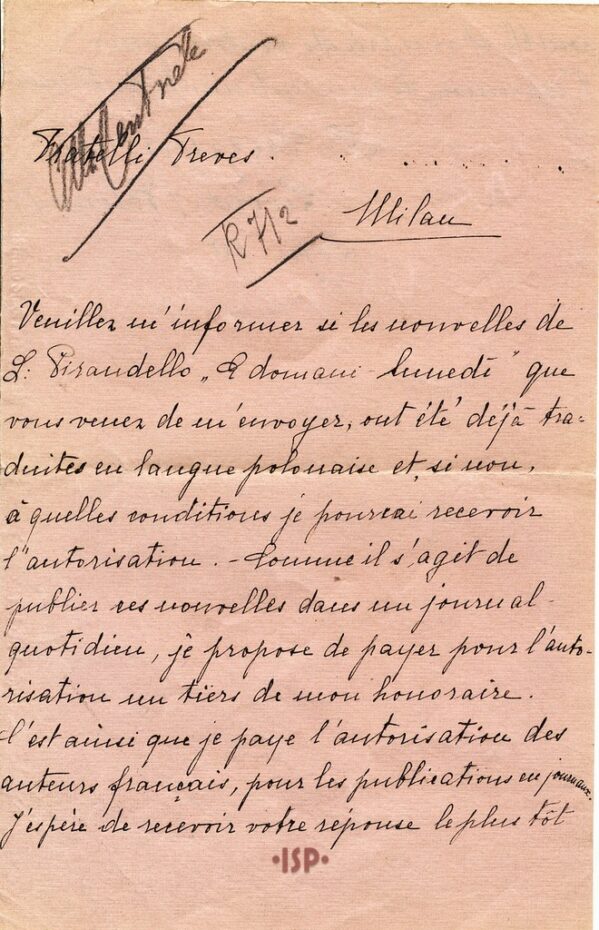 Alla Centrale
Fratelli Treves.
R 7/2
Milan
Veuillez m'informer si les nouvelles de
L. Pirandello „E domani lunedi" que
vous venez de m'envoyer, ont été déjà tra-
duites en langue polonaise et, si non,
à quelles conditions je pourrai recevoir
l'autorisation. - Comme il s'agit de
publier ces nouvelles dans un journal
quotidien, je propose de payer pour l'auto-
risation un tiers de mon honoraire.
C'est ainsi que je paye l'autorisation des
auteurs français, pour les publications en journaux.
J'espère de recevoir votre réponse le plus tôt
·ISP·